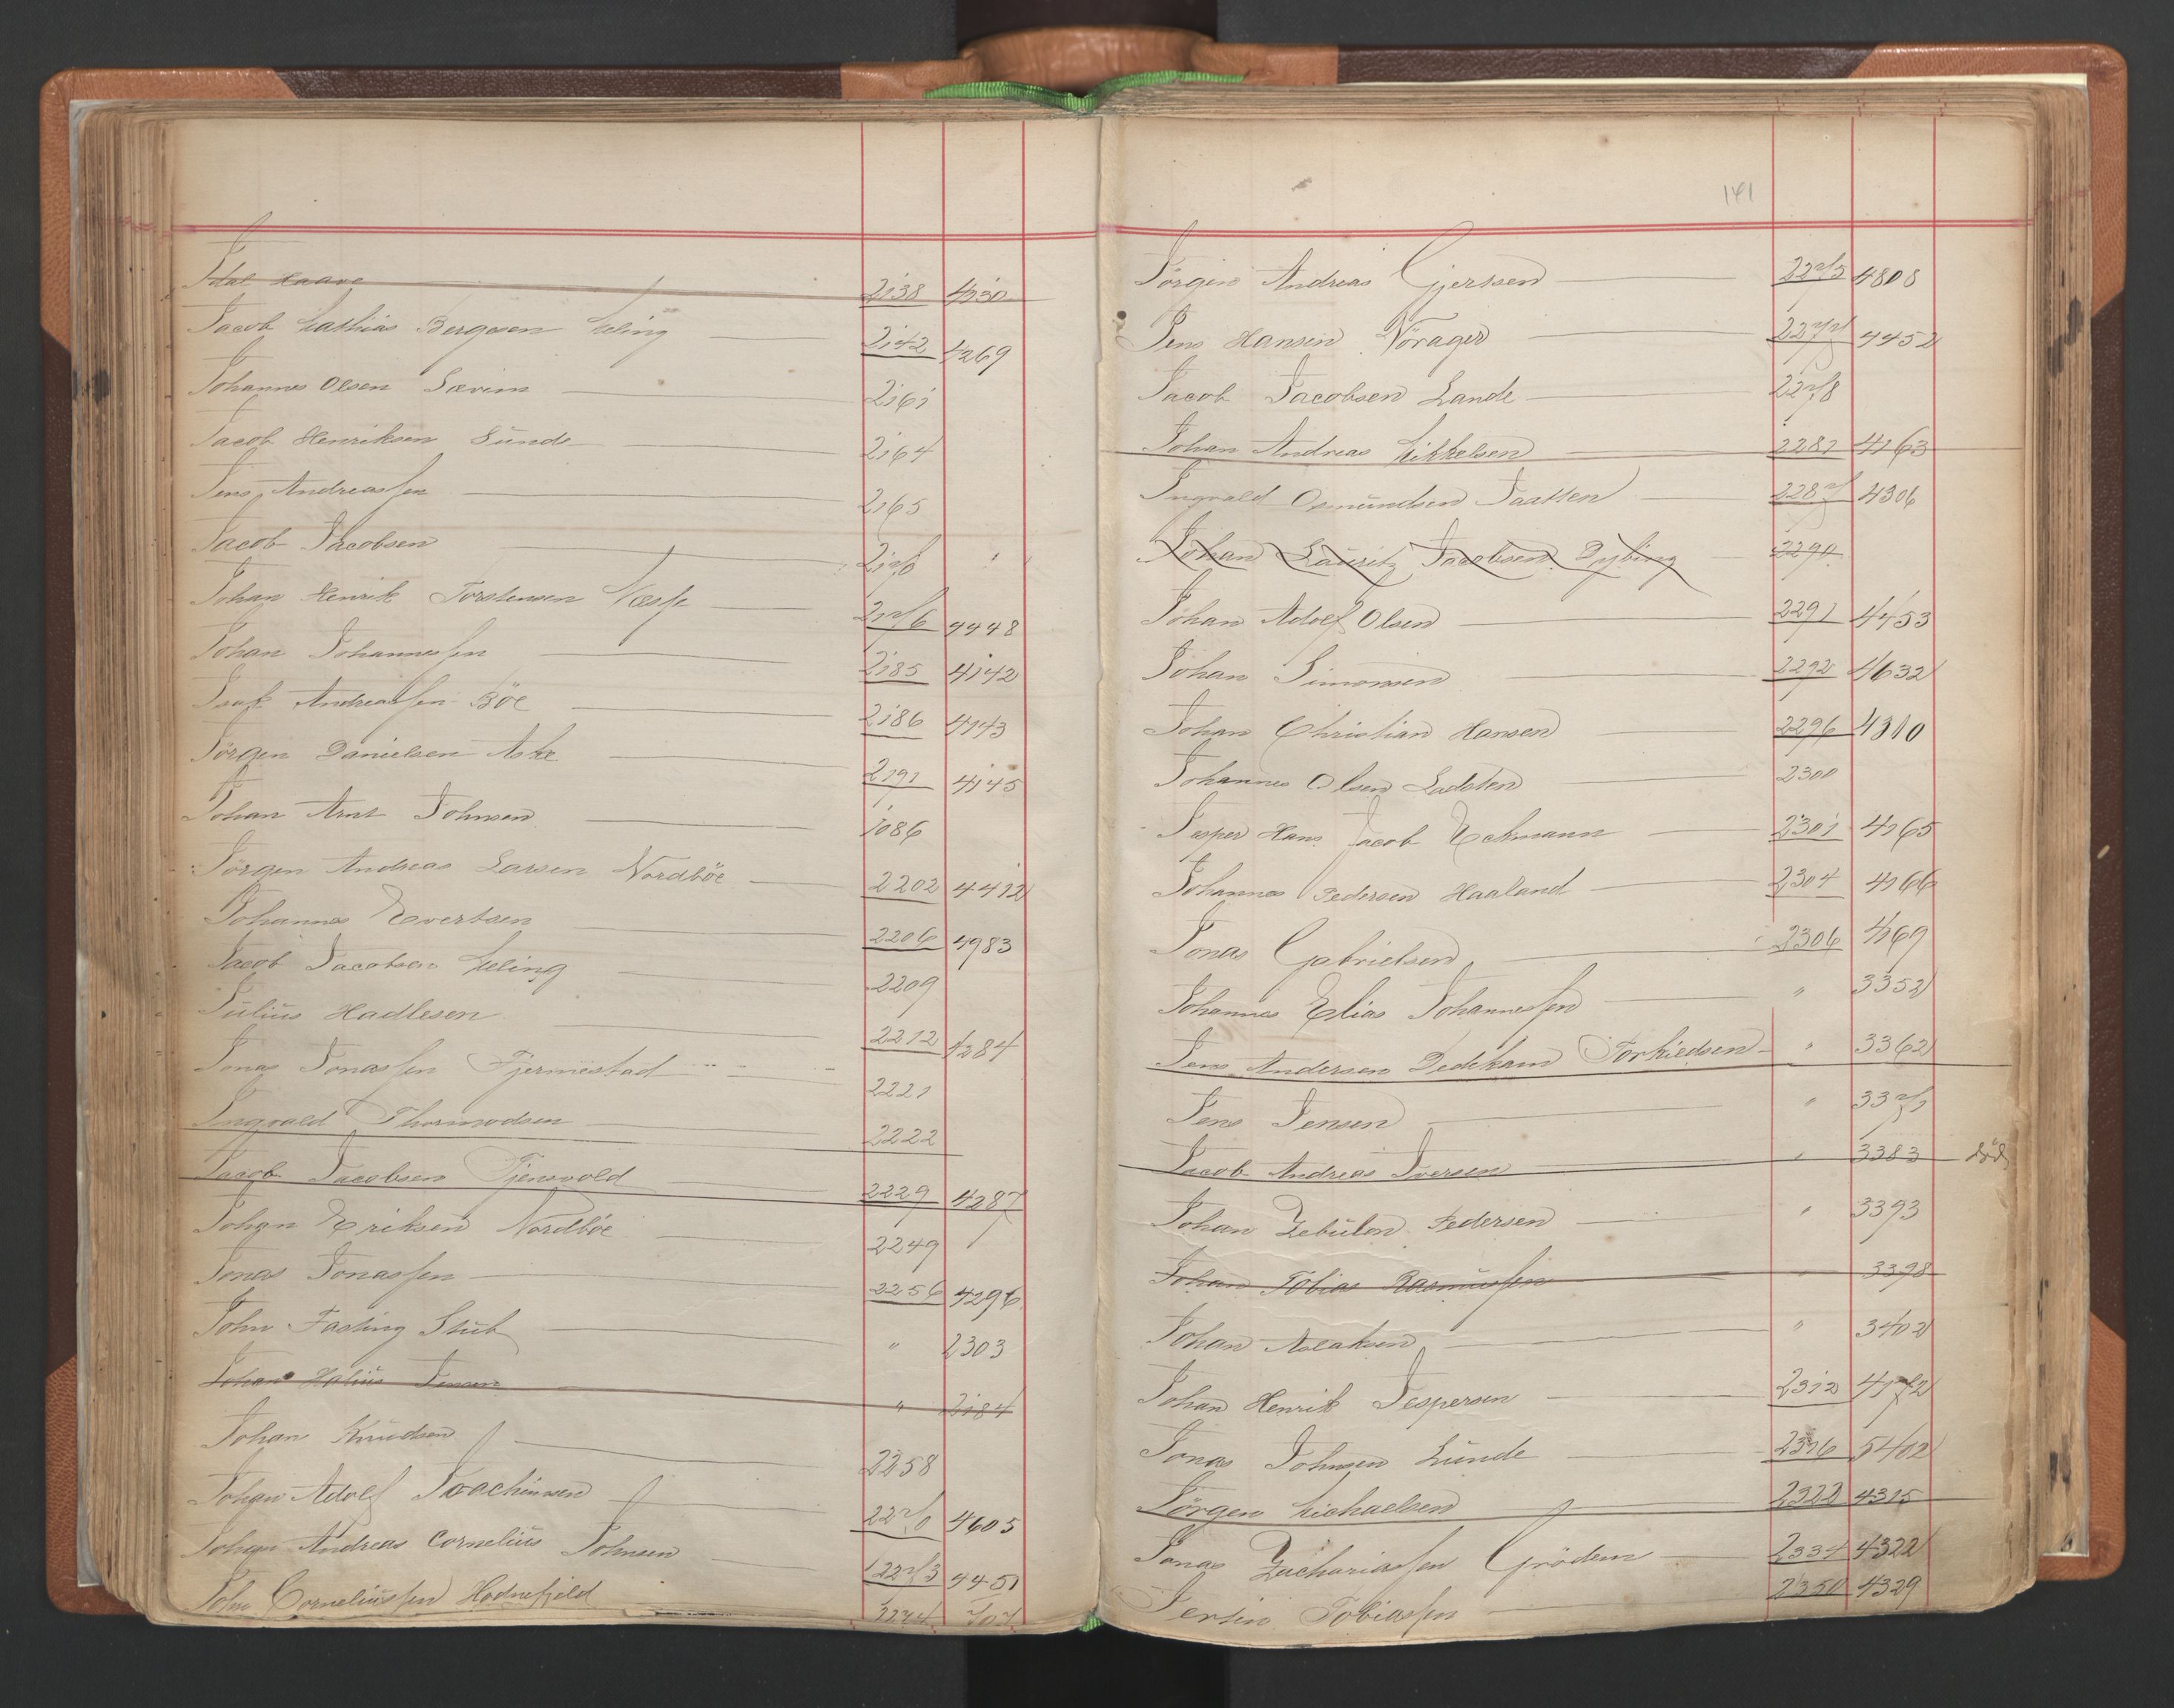 Idal Haave 2138 4230
Jacob Mathias Bergesen Meling 2142 4269
Johannes Olsen Sævim 2161
Jacob Henriksen Lunde 2164
Jens Andreassen 2165
Jacob Jacobsen 2170
Johan Henrik Torstensen Næss 2176 4448
Johan Johannessen 2185 4142
Isak Andreassen Böe 2186 4143
Jörgen Danielsen Aske 2191 4145
Johan Arnt Johnsen 1086
Jörgen Andreas Larsen Nordböe 2202 4412
Johannes Evertsen 2206 4983
Jacob Jacobsen Meling 2209
Julius Hadlesen 2212 4284
Jonas Jonassen Tjermestad 2221
Ingvald Thormodsen 2222
Jacob Jacobsen Tjensvold 2229 4287
Johan Eriksen Nordböe 2249
Jonas Jonassen 2256 4296
John Fasting Stub " 2303
Johan Jensen " 2184
Johan Knudsen 2258
Johan Adolf Joachimsen 2270 4605
Johan Andreas Cornelius Johnsen 2273 4451
John Corneliussen Hodnefjeld 2274
141
Jörgen Andreas Gjertsen 2275 4808
Jens Hansen Nörager 2277 4452
Jacob Jacobsen Lande 2278
Johan Andreas Mikkelsen 2281 4163
Ingvald Osmundsen Taatten 2287 4306
Johan Lauritz Jacobsen Dybing 2290
Johan Adolf Olsen 2291 4453
Johan Simonsen 2292 4632
Johan Christian Hansen 2296 4310
Johannes Olsen Ladsten 2300
Jesper Hans Jacob Eckmann 2301 4165
Johannes Pedersen Haaland 2304 4166
Jonas Gabrielsen 2306 4169
Johannes Elias Johannessen " 3352
Jens Andersen Dedekam Torkiedsen " 3362
Jens Jensen " 3371
Jacob Andreas Iversen " 3383 död
Johan Zebulon Pedersen " 3393
Johan Tobias Rasmussen " 3398
Johan Aslaksen " 3402
Johan Henrik Jespersen 2312 4172
Jonas Johnsen Lunde 2316 5402
Jörgen Michaelsen 2322 4315
Jonas Zachariassen Grödem 2334 4322
Jertin Tobiassen 2350 4329